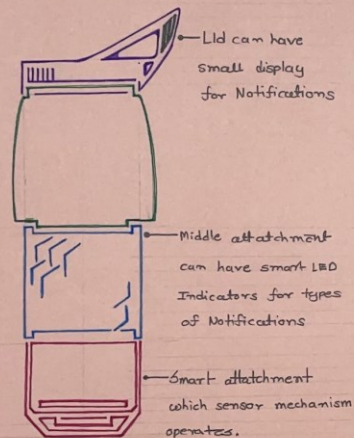 Lid can have
small display
for Notifications
Middle attatchment
can have smart LED
Indicators for types
of Notifications
Smart attatchment
which sensor mechanism
operates.